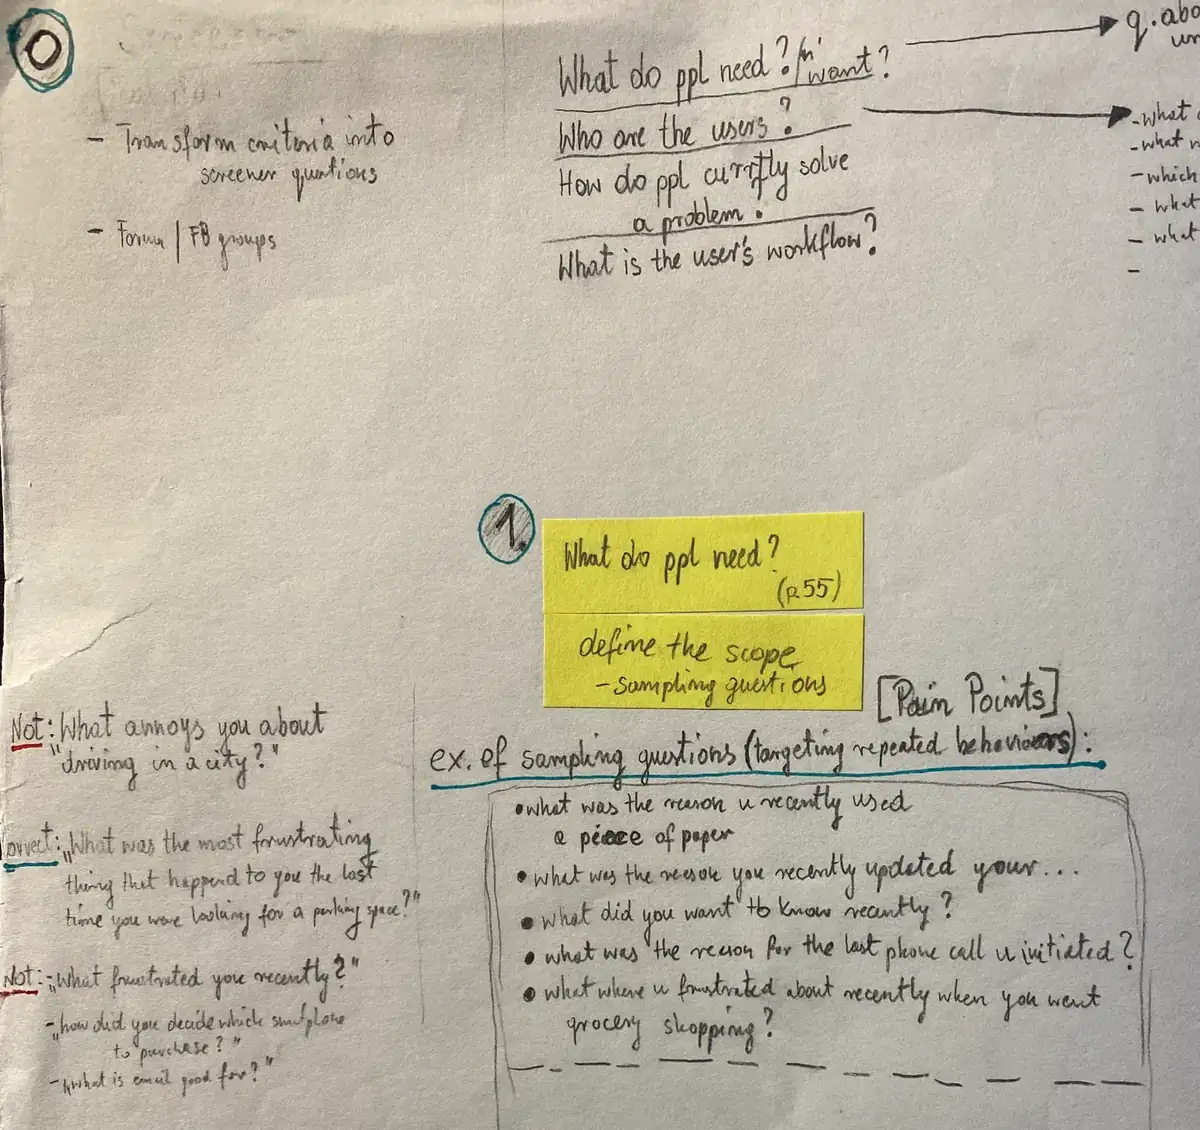 0
- Transform criteria into
screener questions
- Forum / FB groups
What do ppl need? / n' want?
Who are the users?
How do ppl currtly solve
a problem?
What is the user's workflow?
q. abo
un
- what
- what
- which
- what
- what
-
1.
What do ppl need?
(R55)
define the scope
- sampling questions
[Pain Points]
ex. of sampling questions (targeting repeated behaviors):
• what was the reason u recently used
a piece of paper
• what was the reason you recently updated your...
• what did you want to know recently?
• what was the reason for the last phone call u initiated?
• what where u frustrated about recently when you went
grocery shopping?
Not: What annoys you about
"driving in a city?"
orrect: „What was the most frustrating
thing that happend to you the last
time you were looking for a parking space?"
Not: - „What frustrated you recently?"
- „how did you decide which smatphone
to purchase?"
- „what is email good for?"